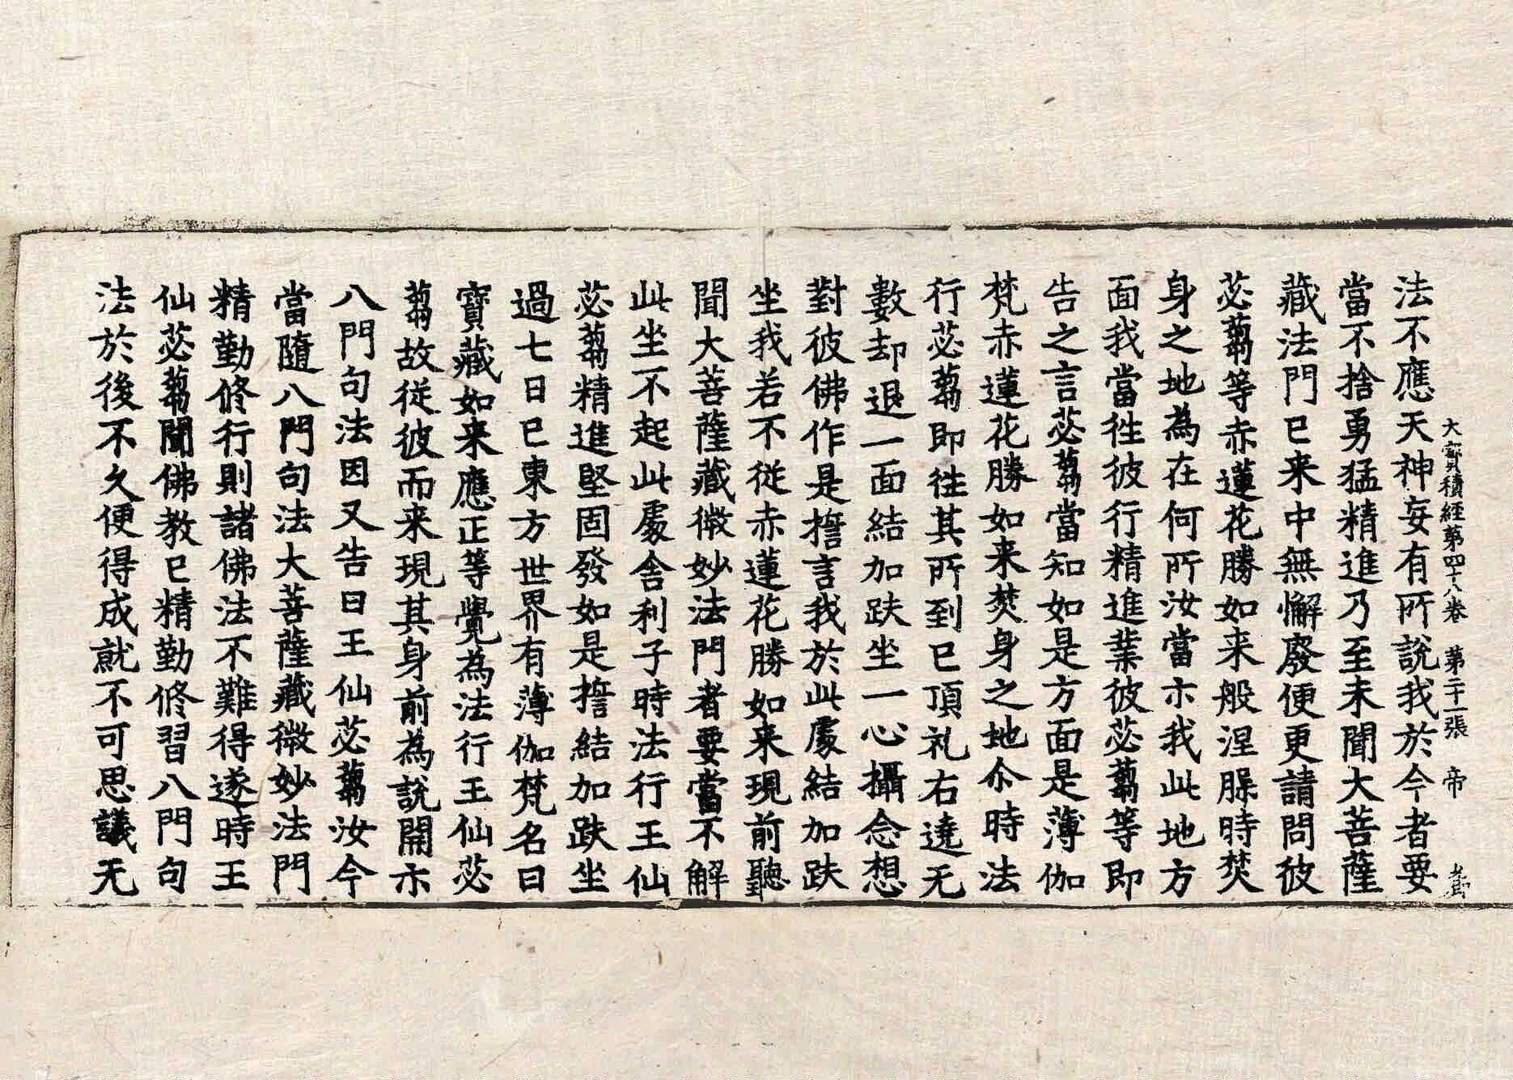 大寶積經第四十八卷 第二十一張 帝
法不應天神妄有所說我於今者要
當不捨勇猛精進乃至未聞大菩薩
藏法門已来中無懈廢便更請問彼
苾蒭等赤蓮花勝如来般涅槃時焚
身之地為在何所汝當示我此地方
面我當徃彼行精進業彼苾蒭等即
告之言苾蒭當知如是方面是薄伽
梵赤蓮花勝如来焚身之地尒時法
行苾蒭即往其所到已頂礼右遶无
數却退一面結加趺坐一心攝念想
對彼佛作是擔言我於此處結加趺
坐我若不從赤蓮花勝如来現前聽
聞大菩薩藏微妙法門者要當不解
此坐不起此處舍利子時法行王仙
苾蒭精進堅固發如是擔結加趺坐
過七日已東方世界有薄伽梵名曰
寶藏如来應正等覺為法行王仙苾
蒭故從彼而来現其身前為說開示
八門句法因又告曰王仙苾蒭汝今
當隨八門句法大菩薩藏微妙法門
精勤修行則諸佛法不難得遂時王
仙苾蒭聞佛教已精勤修習八門句
法於後不久便得成就不可思議无